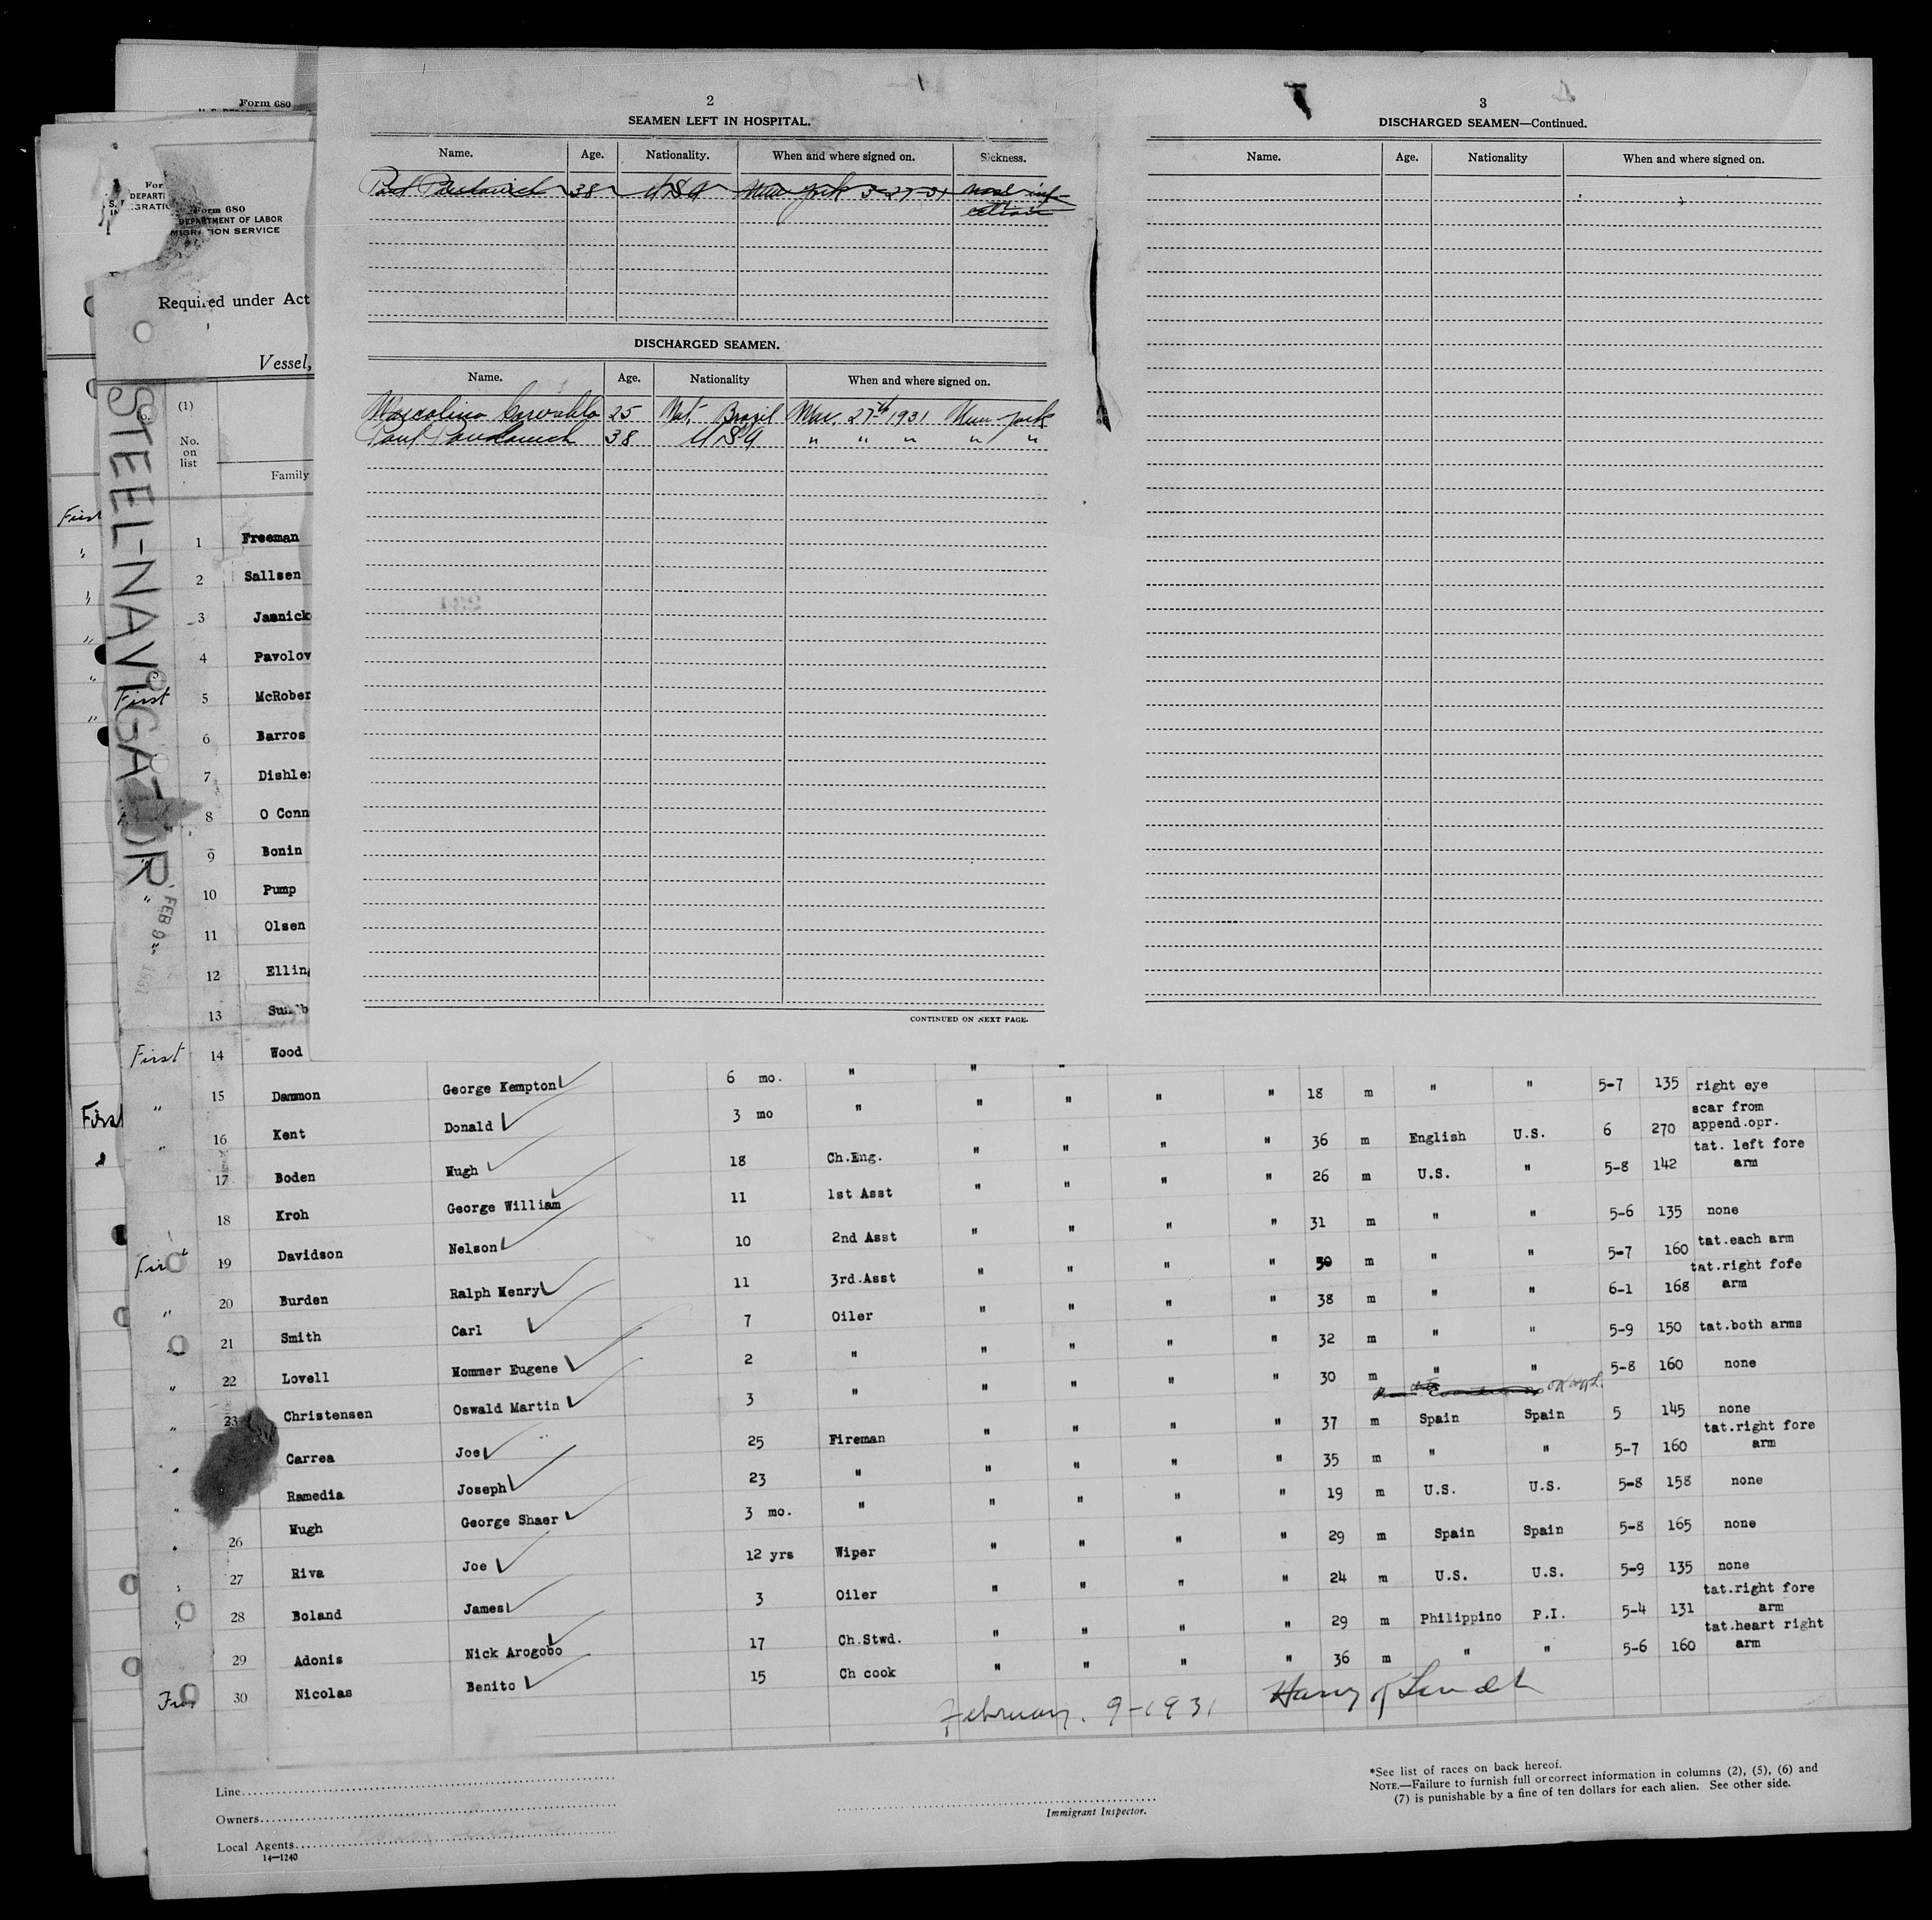 Form 680
Form 680
DEPARTMENT OF LABOR
MIGRATION SERVICE
Required under Act
Vessel,
STEEL-NAVIGATOR
FEB 9 1931
(1)
No. on list
Family
First
1 Freeman
2 Sallsen
3 Jannick
4 Pavolov
First 5 McRober
6 Barros
7 Dishler
8 O Conn
9 Bonin
10 Pump
11 Olsen
12 Elling
13
First 14 Wood
2
SEAMEN LEFT IN HOSPITAL.
Name. Age. Nationality. When and where signed on. Sickness.
Paul 38 U S A New York 3-27-31
DISCHARGED SEAMEN.
Name. Age. Nationality When and where signed on.
25 Nat. Brazil Mar. 27th 1931 New York
Paul 38 U S A " " " " "
CONTINUED ON NEXT PAGE.
3
DISCHARGED SEAMEN—Continued.
Name. Age. Nationality When and where signed on.
15 Dammon George Kempton 6 mo. " " " " " 18 m " " 5-7 135 right eye
16 Kent Donald 3 mo " " " " " 36 m English U.S. 6 270 scar from append.opr.
17 Boden Hugh 18 Ch.Eng. " " " " 26 m U.S. " 5-8 142 tat. left fore arm
18 Kroh George William 11 1st Asst " " " " 31 m " " 5-6 135 none
19 Davidson Nelson 10 2nd Asst " " " " 30 m " " 5-7 160 tat.each arm
20 Burden Ralph Henry 11 3rd.Asst " " " " 38 m " " 6-1 168 tat.right fofe arm
21 Smith Carl 7 Oiler " " " " 32 m " " 5-9 150 tat.both arms
22 Lovell Hommer Eugene 2 " " " " " 30 m " " 5-8 160 none
23 Christensen Oswald Martin 3 " " " " "
Carrea Joe 25 Fireman " " " " 37 m Spain Spain 5 145 none
Ramedia Joseph 23 " " " " " 35 m " " 5-7 160 tat.right fore arm
26 Hugh George Shaer 3 mo. " " " " " 19 m U.S. U.S. 5-8 158 none
27 Riva Joe 12 yrs Wiper " " " " 29 m Spain Spain 5-8 165 none
28 Boland James 3 Oiler " " " " 24 m U.S. U.S. 5-9 135 none
29 Adonis Nick Arogobo 17 Ch.Stwd. " " " " 29 m Philippino P.I. 5-4 131 tat.right fore arm
30 Nicolas Benito 15 Ch cook " " " " 36 m " " 5-6 160 tat.heart right arm
February. 9-1931 Harry
Line
Owners
Local Agents
14—1240
Immigrant Inspector.
*See list of races on back hereof.
NOTE.—Failure to furnish full or correct information in columns (2), (5), (6) and
(7) is punishable by a fine of ten dollars for each alien. See other side.